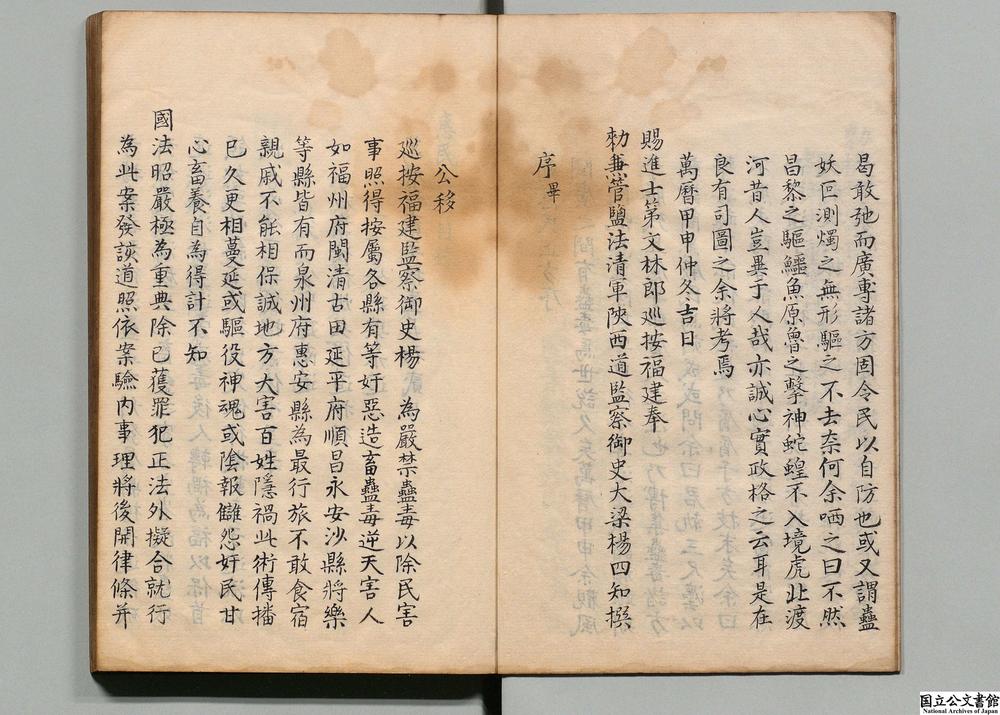 曷敢弛而廣専諸方固令民以自防也或又謂蠱
妖叵測燭之無形驅之不去奈何余哂之曰不然
昌黎之驅鱷魚原魯之擊神蛇蝗不入境虎北渡
河昔人豈異于人哉亦誠心實政格之云耳是在
良有司圖之余將考焉
萬曆甲申仲冬吉日
賜進士第文林郎巡按福建奉
勑兼管鹽法清軍陝西道監察御史大梁楊四知撰
序畢
公移
巡按福建監察御史楊 為嚴禁蠱毒以除民害
事照得按屬各縣有等奸惡造畜蠱毒逆天害人
如福州府閩清古田延平府順昌永安沙縣將樂
等縣皆有而泉州府惠安縣為最行旅不敢食宿
親戚不能相保誠地方大害百姓隱禍此術傳播
已久更相蔓延或驅役神魂或陰報讎怨奸民甘
心畜養自為得計不知
國法昭嚴極為重典除已獲罪犯正法外擬合就行
為此案發該道照依案驗內事理將後開律條并
国立公文書館
National Archives of Japan